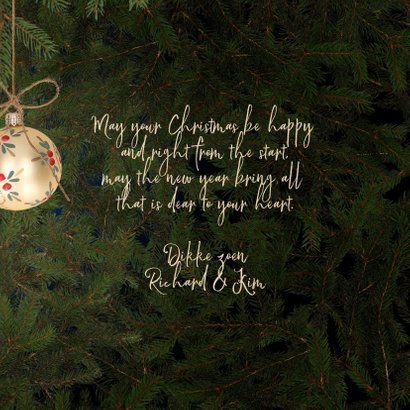 May your Christmas be happy
and right from the start,
may the new year bring all
that is dear to your heart.
Dikke zoen
Richard & Kim